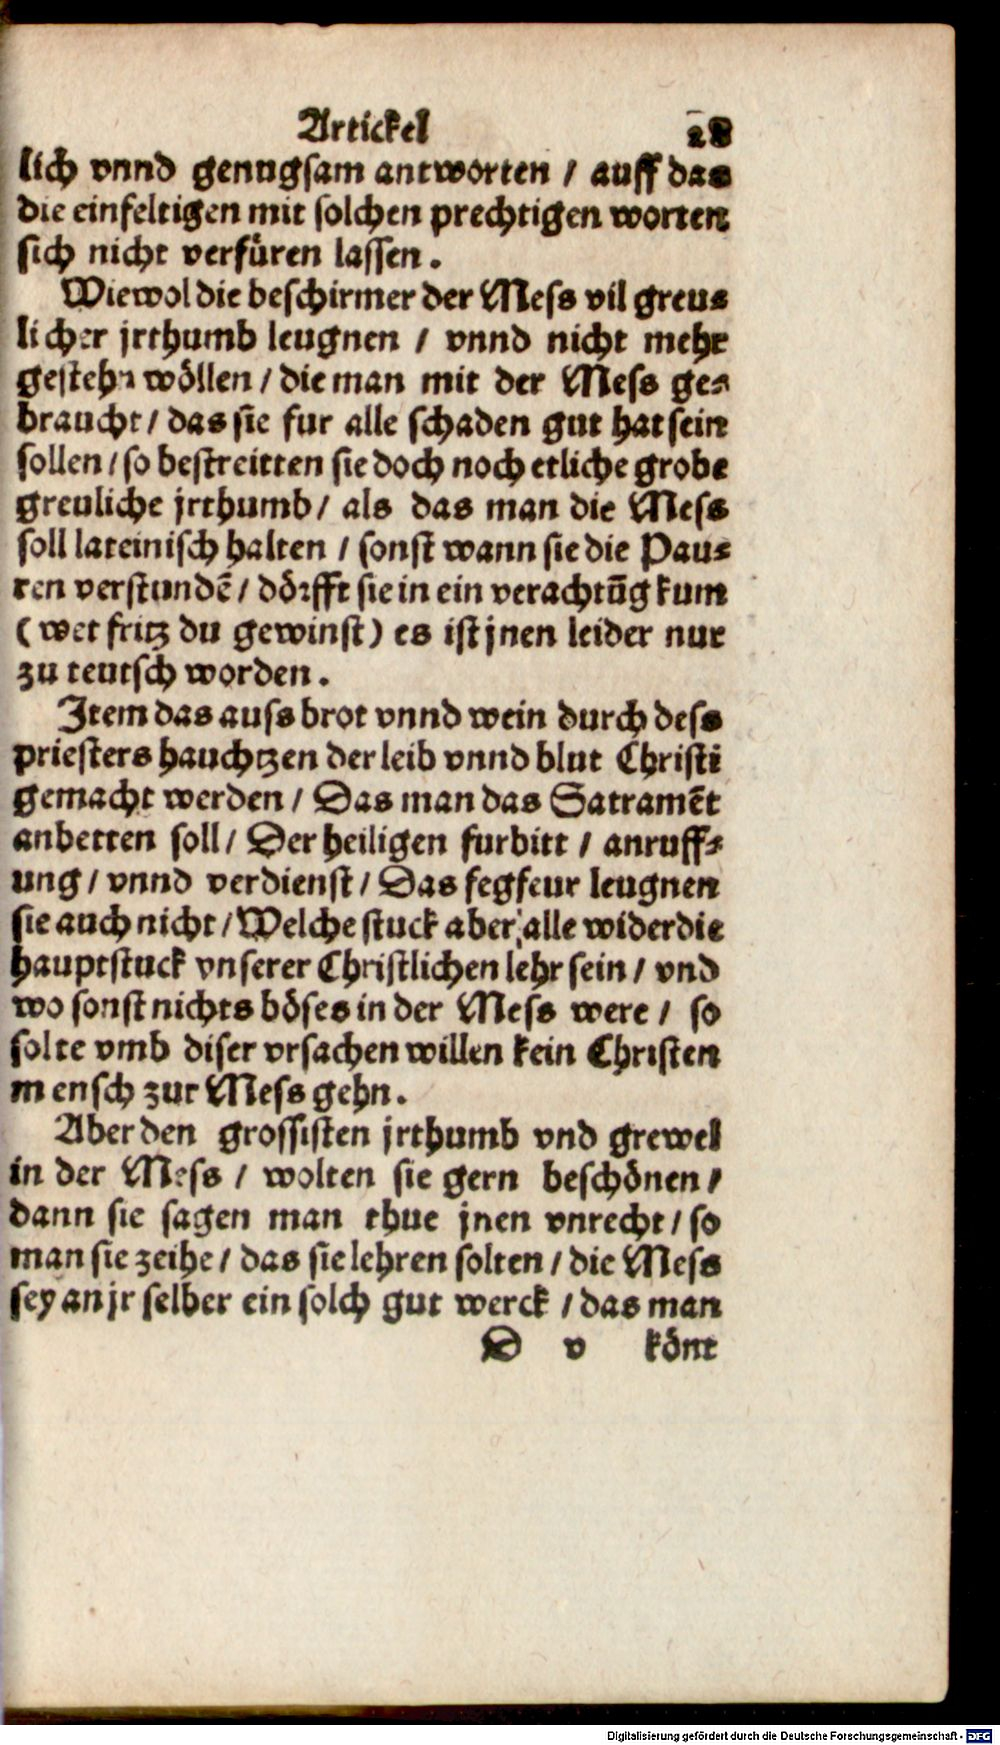 Artickel 28
lich vnnd genugsam antworten / auff das
die einfeltigen mit solchen prechtigen worten
sich nicht verfüren lassen.
Wiewol die beschirmer der Mess vil greus
licher jrthumb leugnen / vnnd nicht mehr
gestehn wöllen / die man mit der Mess ge=
braucht / das sie fur alle schaden gut hat sein
sollen / so bestreitten sie doch noch etliche grobe
greuliche jrthumb / als das man die Mess
soll lateinisch halten / sonst wann sie die Pau=
ren verstundē / dörfft sie in ein verachtūg kum
( wet fritz du gewinst ) es ist jnen leider nur
zu teutsch worden.
Item das auss brot vnnd wein durch dess
priesters hauchtzen der leib vnnd blut Christi
gemacht werden / Das man das Satramēt
anbetten soll / Der heiligen furbitt / anruff=
ung / vnnd verdienst / Das fegfeur leugnen
sie auch nicht / Welche stuck aber alle wider die
hauptstuck vnserer Christlichen lehr sein / vnd
wo sonst nichts böses in der Mess were / so
solte vmb diser vrsachen willen kein Christen
mensch zur Mess gehn.
Aber den grossisten jrthumb vnd grewel
in der Mess / wolten sie gern beschönen /
dann sie sagen man thue jnen vnrecht / so
man sie zeihe / das sie lehren solten / die Mess
sey an jr selber ein solch gut werck / das man
D v könt
Digitalisierung gefördert durch die Deutsche Forschungsgemeinschaft - DFG